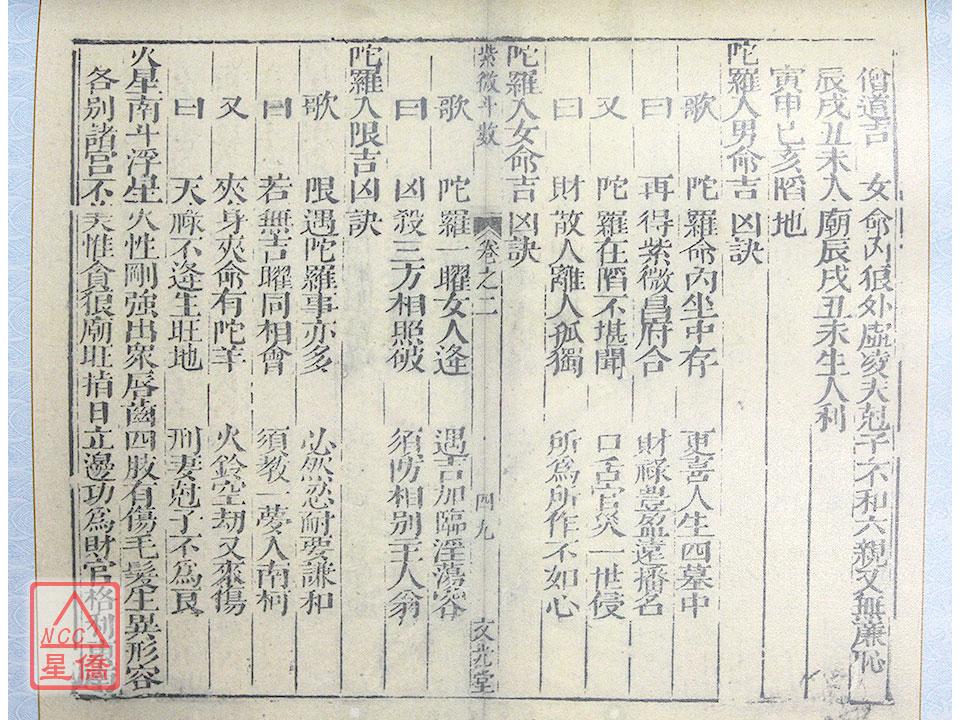 僧道吉　女命內狠外虛凌夫尅子不和六親又無廉恥
辰戌丑未入廟辰戌丑未生人利
寅申巳亥陷地
陀羅入男命吉凶訣
歌　陀羅命內坐中存　更喜人生四墓中
曰　再得紫微昌府合　財祿豊盈遠播名
又　陀羅在陷不堪聞　口舌官災一世侵
曰　財散人離人孤獨　所為所作不如心
陀羅入女命吉凶訣
紫微斗數　卷之二　四九　文光堂
歌　陀羅一曜女人逢　遇吉加臨淫蕩容
曰　凶殺三方相照破　須防相別主人翁
陀羅入限吉凶訣
歌　限遇陀羅事亦多　必然忍耐要謙和
曰　若無吉曜同相會　須教一夢入南柯
又　夾身夾命有陀羊　火鈴空劫又來傷
曰　天祿不逢生旺地　刑妻尅子不為良
火星南斗浮星火性剛強出眾唇齒四肢有傷毛髮生異形容
各別諸宮不美惟貪狠廟旺指日立邊功為財官格
NCC
星僑